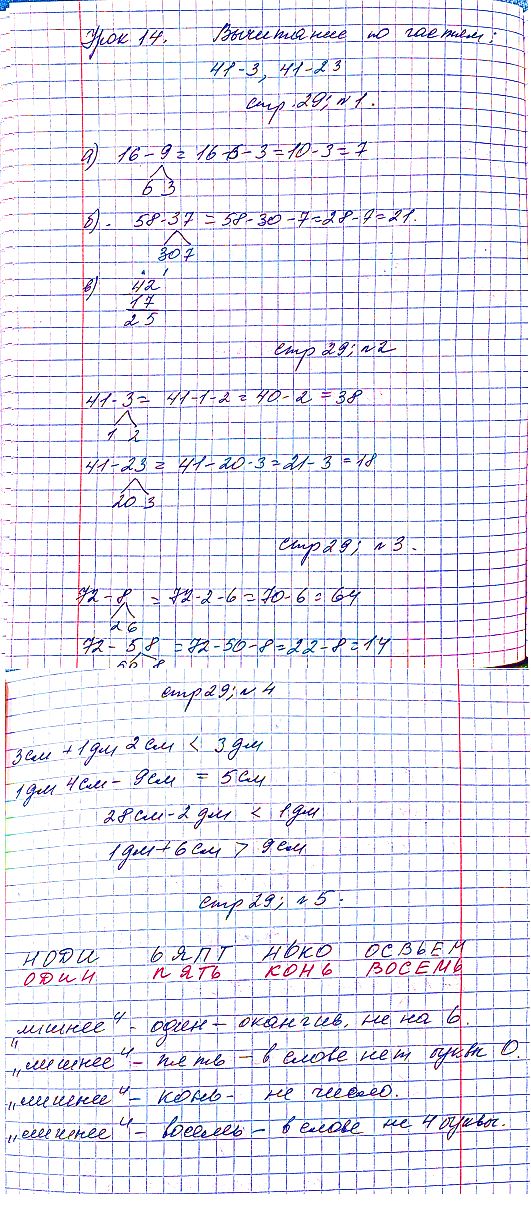 Урок 14. Вычитание по частям:
41-3, 41-23
стр. 29; №1.
а) 16-9=16-6-3=10-3=7
6 3
б). 58-37=58-30-7=28-7=21.
30 7
в) 42
17
25
стр 29; №2
41-3= 41-1-2=40-2=38
1 2
41-23= 41-20-3=21-3=18
20 3
стр 29; №3.
72-8 =72-2-6=70-6=64
2 6
72-58 =72-50-8=22-8=14
50 8
стр 29; №4
3см+1дм 2см < 3дм
1дм 4см-9см = 5см
28см-2дм < 1дм
1дм+6см > 9см
стр 29; №5.
НОДИ ЬЯПТ НЬКО ОСВЬЕМ
ОДИН ПЯТЬ КОНЬ ВОСЕМЬ
„лишнее" - один - оканчив. не на ь.
„лишнее" - пять - в слове нет буквы О.
„лишнее" - конь - не число.
„лишнее" - восемь - в слове не 4 буквы.